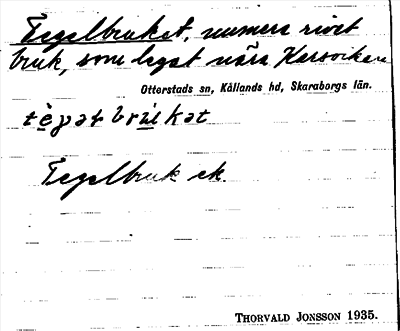 Tegelbruket, numera rivet
bruk, som legat nära Harsviken
Otterstads sn, Kållands hd, Skaraborgs län.
Tegelbruk ek.
THORVALD JONSSON 1935.